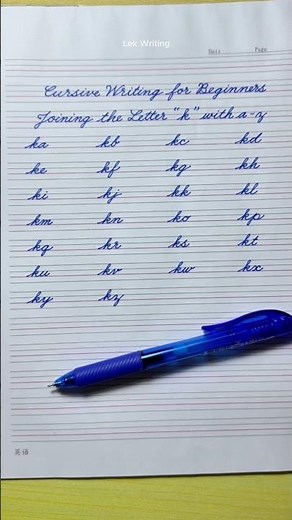 Lek Writing
Date Page
Cursive Writing for Beginners
Joining the Letter "k" with a-z
ka kb kc kd
ke kf kg kh
ki kj kk kl
km kn ko kp
kq kr ks kt
ku kv kw kx
ky kz
英语